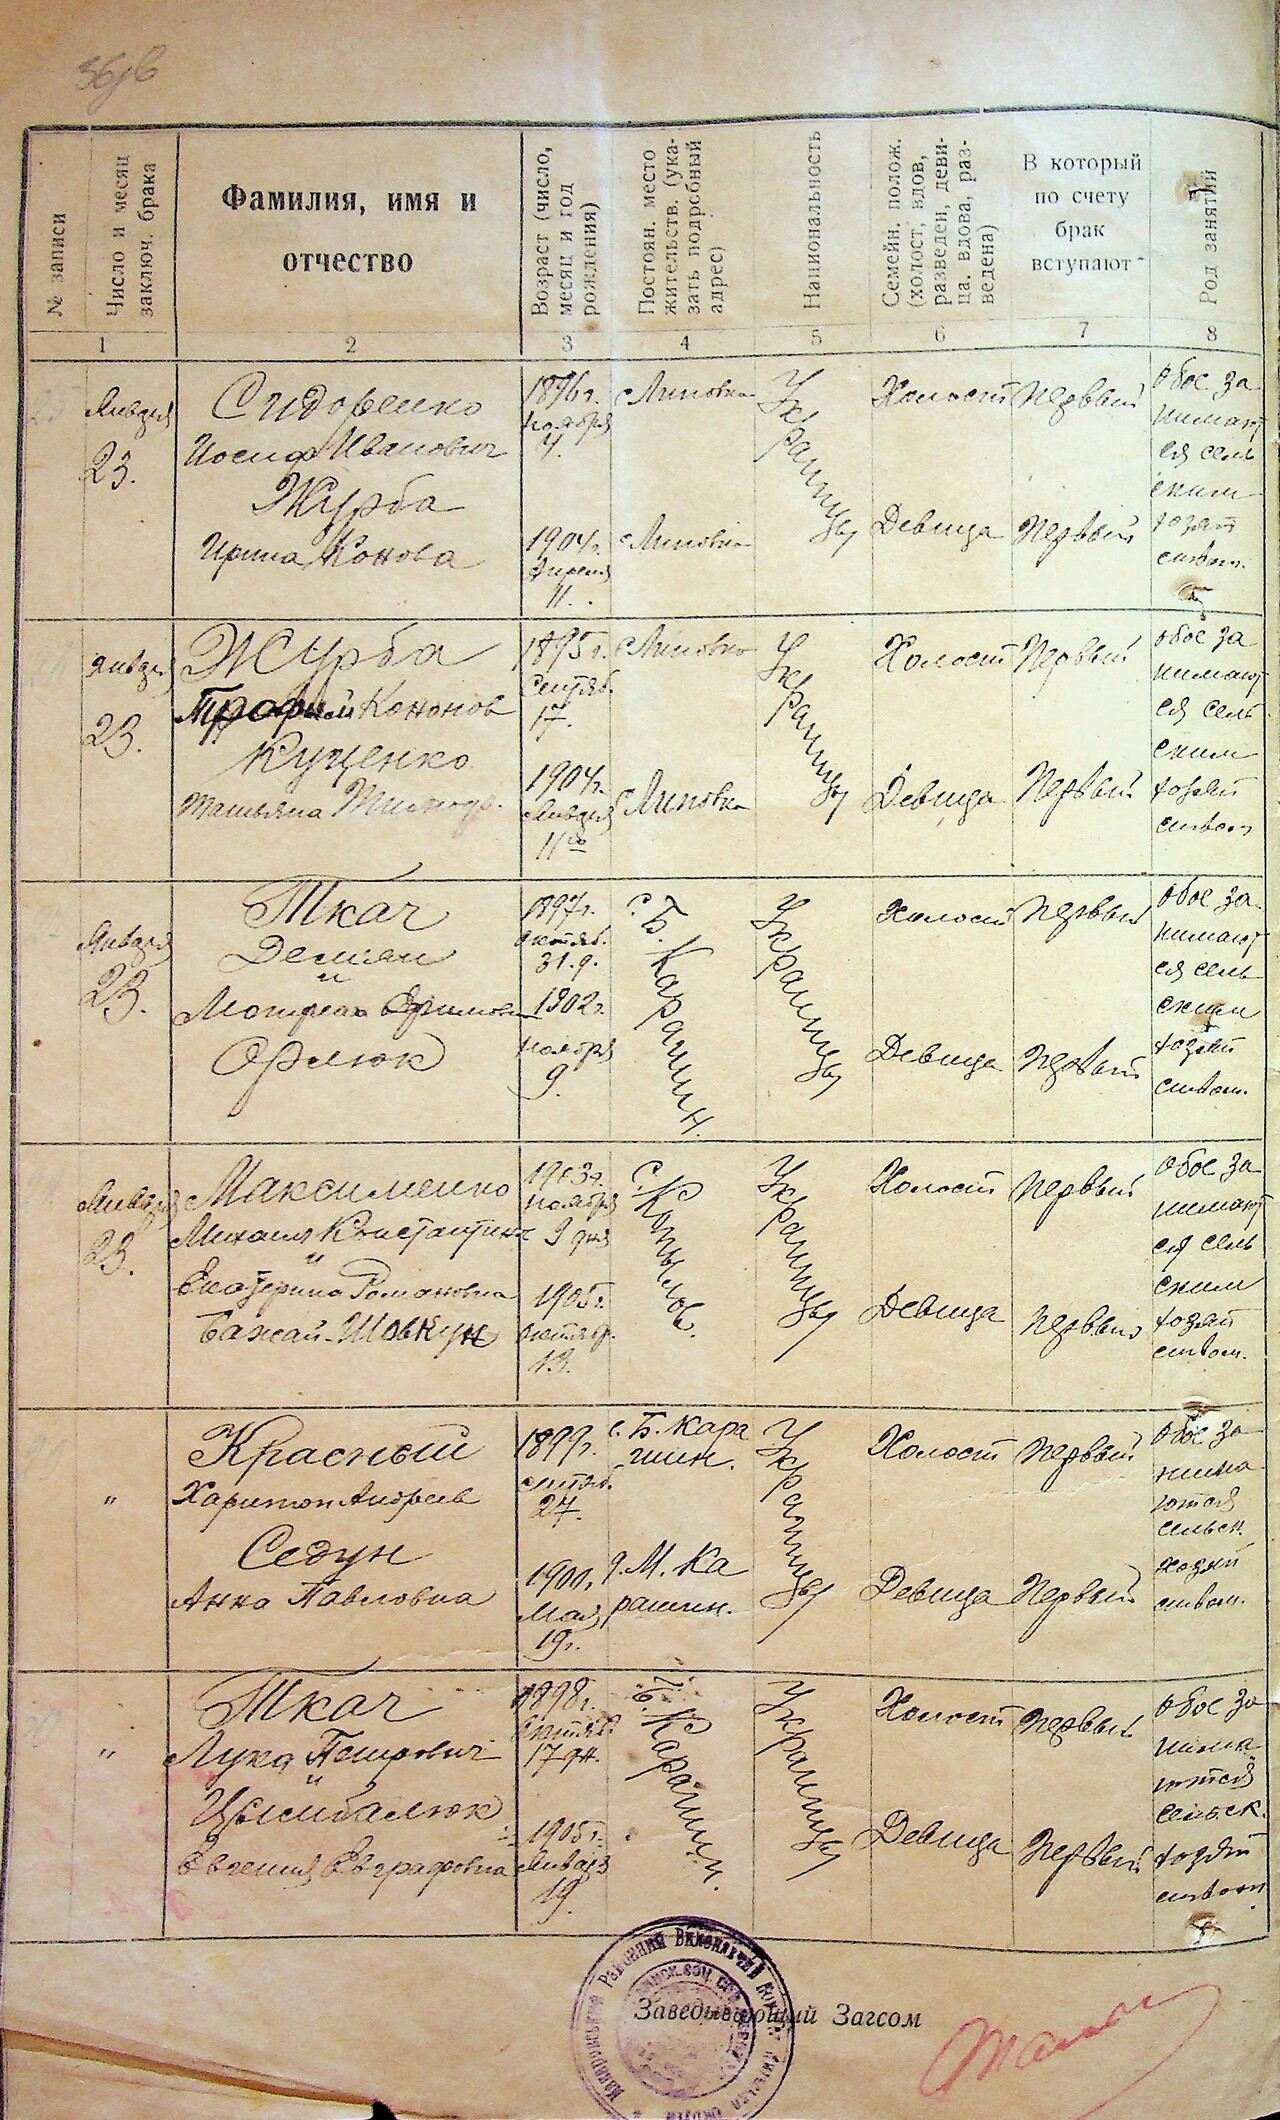 № записи
Число и месяц
заключ. брака
Фамилия, имя и
отчество
Возраст (число,
месяц и год
рождения)
Постоян. место
жительств. (ука-
зать подробный
адрес)
Национальность
Семейн. полож.
(холост, вдов,
разведен, деви-
ца, вдова, раз-
ведена)
В который
по счету
брак
вступают
Род занятий
1
2
3
4
5
6
7
8
Января
23.
Сидоренко
Иосиф Иванович
Журба
Ирина Конова
1896 г.
ноября
4.
1904 г.
Апреля
11.
с Липовка
с Липовка
Украинцы
Холост
Девица
Первый
Первый
обое за
нимают
ся сель
ским
хозяй
ством.
Января
23.
Журба
Трофим Кононов
Куценко
Татьяна
1895 г.
Сентяб.
17.
1904 г.
Января
11го
с Липовка
с Липовка
Украинцы
Холост
Девица
Первый
Первый
обое за
нимают
ся сель
ским
хозяй
ством
Января
23.
Ткач
Демян
и
Мотрея
Орлюк
1897 г.
октяб.
31.
1902 г.
ноября
9.
с. Б. Карашин.
Украинцы
Холост
Девица
Первый
Первый
обое за
нимают
ся сель
ским
хозяй
ством.
Января
23.
Максименко
Михаил Константинов
и
Екатерина Романовна
Бажай-Шовкун
1903 г.
ноября
9 дня
1905 г.
октябр.
13.
с. Копылов.
Украинцы
Холост
Девица
Первый
Первый
обое за
нимают
ся сель
ским
хозяй
ством.
"
Красный
Харитон Андреев
Седун
Анна Павловна
1899 г.
сентяб.
27.
1901,
Мая
19 г.
с. Б. Кара
шин.
д. М. Ка
рашин.
Украинцы
Холост
Девица
Первый
Первый
обое за
нима
ются
сельск.
хозяй
ством.
"
Ткач
Лука Петрович
и
Цымбалюк
Евгения Евграфовна
1898 г.
Октября
17 дн.
1905 г.
Января
19.
Б. Карашин.
Украинцы
Холост
Девица
Первый
Первый
обое за
нима
ются
сельск.
хозяй
ством
Заведывающий Загсом